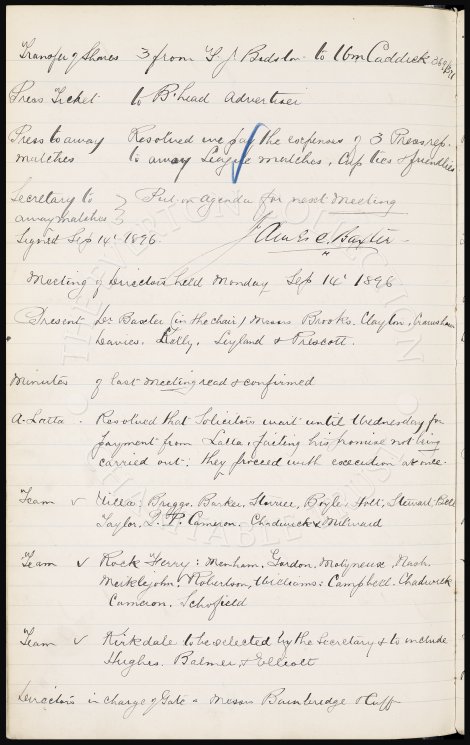 Transfer of Shares 3 from F. J. to Wm Caddick
Press Ticket to B'head Advertiser
Press to away Resolved we pay the expenses of 3 Press rep.
matches to away League matches, Cup ties & friendlies
Secretary to } Put on agenda for next meeting
away matches }
Signed Sep 14' 1896. James C. Baxter
Meeting of Directors held Monday Sep 14' 1896.
Present Dr Baxter (in the chair) Messrs Brooks. Clayton, Crawshaw
Davies. Kelly, Leyland & Prescott.
Minutes of last meeting read & confirmed
A. Latta - Resolved that Solicitors wait until Wednesday for
payment from Latta, failing his promise not being
carried out, they proceed with execution at once.
Team v Villa: Briggs, Barker, Storrier, Boyle, Holt, Stewart, Bell
Taylor, D. P. Cameron, Chadwick & Milward
Team v Rock Ferry: Menham, Gordon, Molyneux, Nash,
Meiklejohn, Robertson, Williams: Campbell. Chadwick
Cameron, Schofield
Team v Kirkdale to be selected by the Secretary & to include
Hughes. Balmer, & Elliott
Directors in charge of Gate - Messrs Bainbridge & Cuff